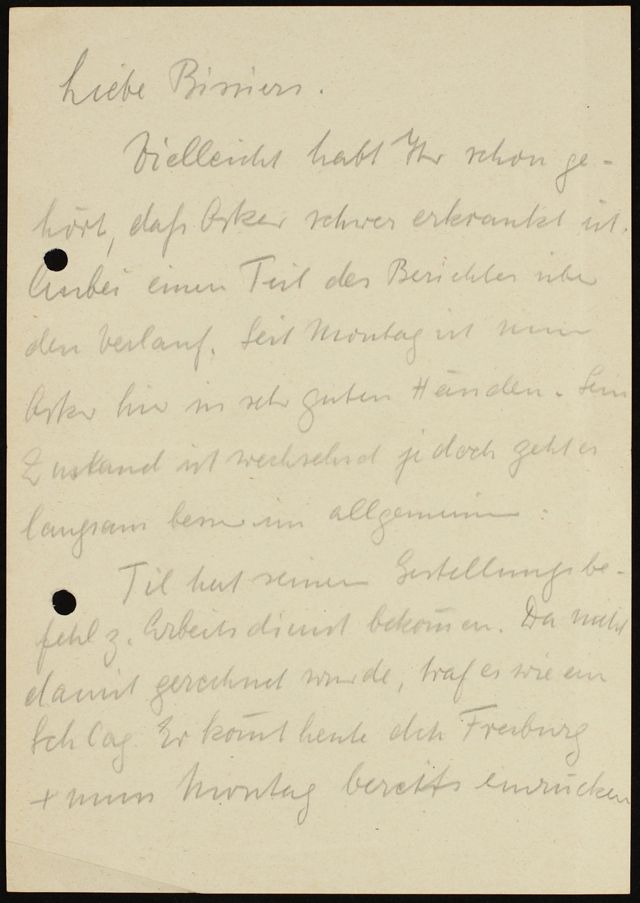 Liebe Bissiers.
Vielleicht habt Ihr schon ge-
hört, daß Oskar schwer erkrankt ist.
Anbei einen Teil des Berichtes über
den Verlauf. Seit Montag ist nun
Oskar hier in sehr guten Händen. Sein
Zustand ist wechselnd jedoch geht es
langsam besser im allgemeinen.
Til hat seinen Gestellungsbe-
fehl z. Arbeitsdienst bekom̄en. Da nicht
damit gerechnet wurde, traf es wie ein
Schlag. Er kom̄t heute dch Freiburg
+ muss Montag bereits einrücken